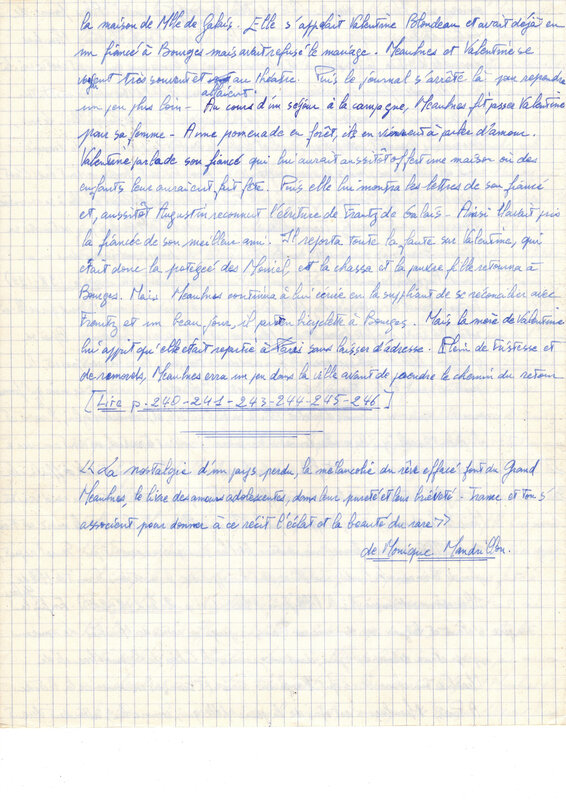 la maison de Mlle de Galais. Elle s'appelait Valentine Blondeau et avait déjà eu
un fiancé à Bourges mais avait refusé le mariage. Meaulnes et Valentine se
voyaient très souvent et allaient au théâtre. Puis le journal s'arrête là pour reprendre
un peu plus loin - Au cours d'un séjour à la campagne, Meaulnes fit passer Valentine
pour sa femme - A une promenade en forêt, ils en vinrent à parler d'amour.
Valentine parla de son fiancé qui lui aurait aussitôt offert une maison où des
enfants leur auraient fait fête. Puis elle lui montra les lettres de son fiancé
et, aussitôt Augustin reconnut l'écriture de Frantz de Galais - Ainsi il avait pris
la fiancée de son meilleur ami. Il reporta toute la faute sur Valentine, qui
était donc la protégée des Moinel, et la chassa et la pauvre fille retourna à
Bourges. Mais Meaulnes continua à lui écrire en la suppliant de se réconcilier avec
Frantz et un beau jour, il partit en bicyclette à Bourges. Mais la mère de Valentine
lui apprit qu'elle était repartie à Paris sans laisser d'adresse. Plein de tristesse et
de remords, Meaulnes erra un peu dans la ville avant de prendre le chemin du retour
[Lire p. 240-241-243-244-245-246]
<< La nostalgie d'un pays perdu, la mélancolie du rêve effacé font du Grand
Meaulnes, le livre des amours adolescentes, dans leur pureté et leur brièveté - Trame et ton s'
associent pour donner à ce récit l'éclat et la beauté du rare >>
de Monique Mandrillon.